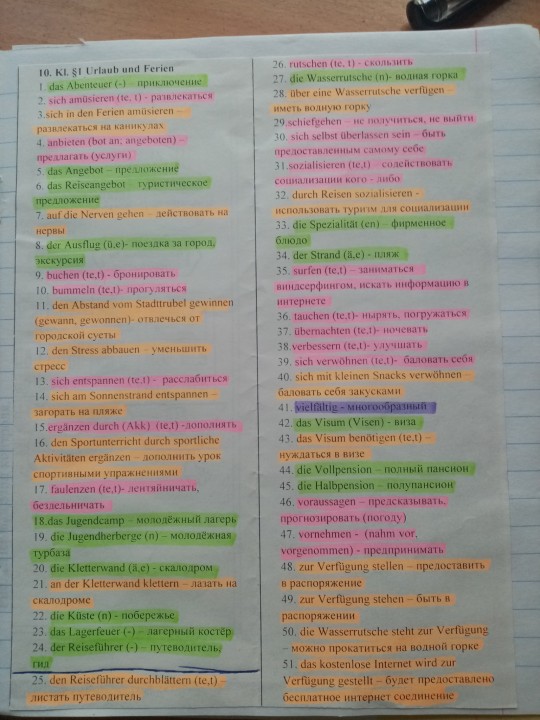 10. Kl. §1 Urlaub und Ferien
1. das Abenteuer (-) – приключение
2. sich amüsieren (te, t) - развлекаться
3.sich in den Ferien amüsieren –
развлекаться на каникулах
4. anbieten (bot an, angeboten) –
предлагать (услуги)
5. das Angebot – предложение
6. das Reiseangebot – туристическое
предложение
7. auf die Nerven gehen – действовать на
нервы
8. der Ausflug (ü,e)- поездка за город,
экскурсия
9. buchen (te,t) - бронировать
10. bummeln (te,t)- прогуляться
11. den Abstand vom Stadttrubel gewinnen
(gewann, gewonnen)- отвлечься от
городской суеты
12. den Stress abbauen – уменьшить
стресс
13. sich entspannen (te,t) - расслабиться
14. sich am Sonnenstrand entspannen –
загорать на пляже
15.ergänzen durch (Akk) (te,t) -дополнять
16. den Sportunterricht durch sportliche
Aktivitäten ergänzen – дополнить урок
спортивными упражнениями
17. faulenzen (te,t)- лентяйничать,
бездельничать
18.das Jugendcamp – молодёжный лагерь
19. die Jugendherberge (n) – молодёжная
турбаза
20. die Kletterwand (ä,e) - скалодром
21. an der Kletterwand klettern – лазать на
скалодроме
22. die Küste (n) - побережье
23. das Lagerfeuer (-) – лагерный костёр
24. der Reiseführer (-) – путеводитель,
гид
25. den Reiseführer durchblättern (te,t) –
листать путеводитель
26. rutschen (te, t) - скользить
27. die Wasserrutsche (n)- водная горка
28. über eine Wasserrutsche verfügen –
иметь водную горку
29.schiefgehen – не получиться, не выйти
30. sich selbst überlassen sein – быть
предоставленным самому себе
31.sozialisieren (te,t) – содействовать
социализации кого - либо
32. durch Reisen sozialisieren -
использовать туризм для социализации
33. die Spezialität (en) – фирменное
блюдо
34. der Strand (ä,e) - пляж
35. surfen (te,t) – заниматься
виндсерфингом, искать информацию в
интернете
36. tauchen (te,t)- нырять, погружаться
37. übernachten (te,t)- ночевать
38.verbessern (te,t)- улучшать
39. sich verwöhnen (te,t)- баловать себя
40. sich mit kleinen Snacks verwöhnen –
баловать себя закусками
41. vielfältig - многообразный
42. das Visum (Visen) - виза
43. das Visum benötigen (te,t) –
нуждаться в визе
44. die Vollpension – полный пансион
45. die Halbpension – полупансион
46. voraussagen – предсказывать,
прогнозировать (погоду)
47. vornehmen - (nahm vor,
vorgenommen) - предпринимать
48. zur Verfügung stellen – предоставить
в распоряжение
49. zur Verfügung stehen – быть в
распоряжении
50. die Wasserrutsche steht zur Verfügung
– можно прокатиться на водной горке
51. das kostenlose Internet wird zur
Verfügung gestellt – будет предоставлено
бесплатное интернет соединение